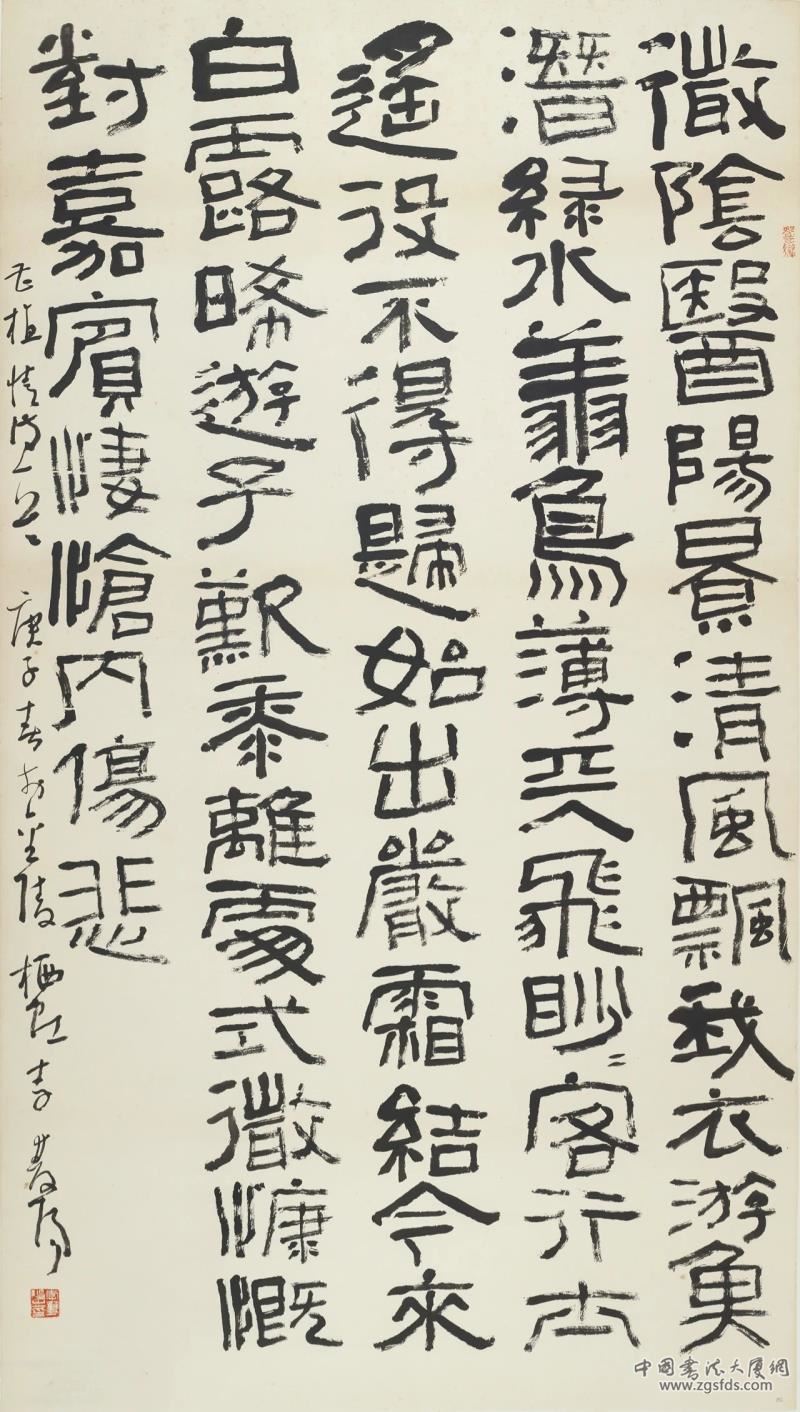 微陰醫陽景清風飄我衣游魚
潛綠水翔鳥薄天飛眇〻客行士
遙役不得歸始出嚴霜結今來
白露晞遊子歎黍離處式微慷慨
對嘉賓悽愴內傷悲
植情詩 庚子春於金陵 栖
中國書法大廈網
www.zgsfds.com